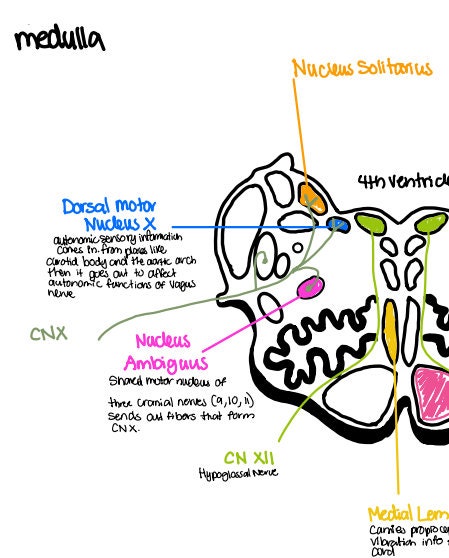 medulla
Nucleus Solitarius
4th ventricle
Dorsal motor
Nucleus X
autonomic sensory information
comes in from places like
carotid body and the aortic arch
then it goes out to affect
autonomic functions of vagus
nerve
CNX
Nucleus
Ambiguus
Shared motor nucleus of
three cranial nerves (9,10,11)
sends out fibers that form
CNX.
CN XII
Hypoglossal Nerve
Medial Lem
Carries proprocep
vibration info
cord